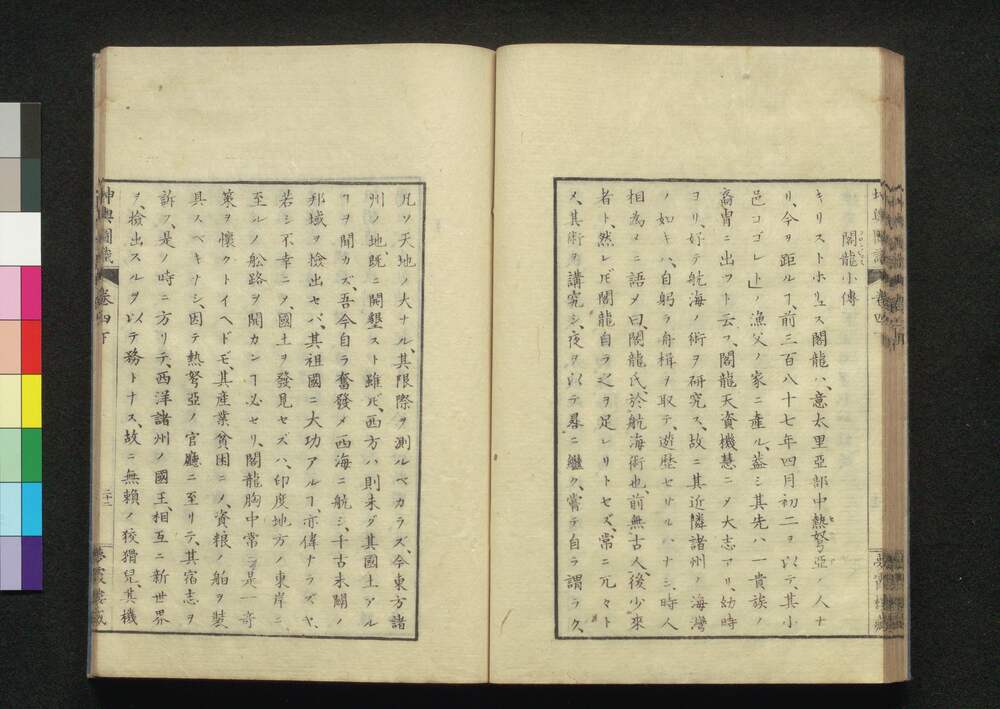 閣龍小傳
キリストホリュス閣龍ハ、意太里亞部中熱弩亞ノ人ナ
リ、今ヲ距ルヿ、前三百八十七年四月初二ヲ以テ、其小
邑コゴレト」ノ漁父ノ家ニ產ル、蓋シ其先ハ一貴族ノ
裔冑ニ出フト云フ、閣龍天資機慧ニメ大志アリ、幼時
ヨリ、好テ航海ノ術ヲ研究ス、故ニ其近隣諸州ノ海灣
ノ如キハ、自躬ラ舟楫ヲ取テ、遊歷セサルハナシ、時人
相為メニ語メ曰、閣龍氏、於航海術也、前無古人、後少來
者ト、然レ𪜈閣龍自ラ之ヲ足レリトセズ、常ニ兀々ト
メ、其術ヲ講究シ、夜ヲ以テ晷ニ繼ク、嘗テ自ラ謂ラク、
凡ソ天地ノ大ナル、其限際ヲ測ルベカラズ、今東方諸
州ノ地、既ニ開墾スト雖𪜈、西方ハ則未ダ其國土アル
ヿヲ聞カズ、吾今自ラ奮發メ西海ニ航シ、千古未闢ノ
邦域ヲ檢出セバ、其祖國ニ大功アルヿ、亦偉ナラズヤ、
若シ不幸ニメ國土ヲ發見セズハ、印度地方ノ東岸ニ
至ルノ舩路ヲ開カンヿ必セリ、閣龍胸中常ニ是一奇
策ヲ懷クトイヘドモ、其産業貧困ニメ、資粮ノ舶ヲ裝
具スベキナシ、因テ熱弩亞ノ官廳ニ至リテ、其宿志ヲ
訴フ、是ノ時ニ方リテ、西洋諸州ノ國王、相互ニ新世界
ヲ、檢出スルヲ以テ務トナス、故ニ無賴ノ狡猾兒、其機
坤輿圖識
卷四下
二十二
夢霞樓藏